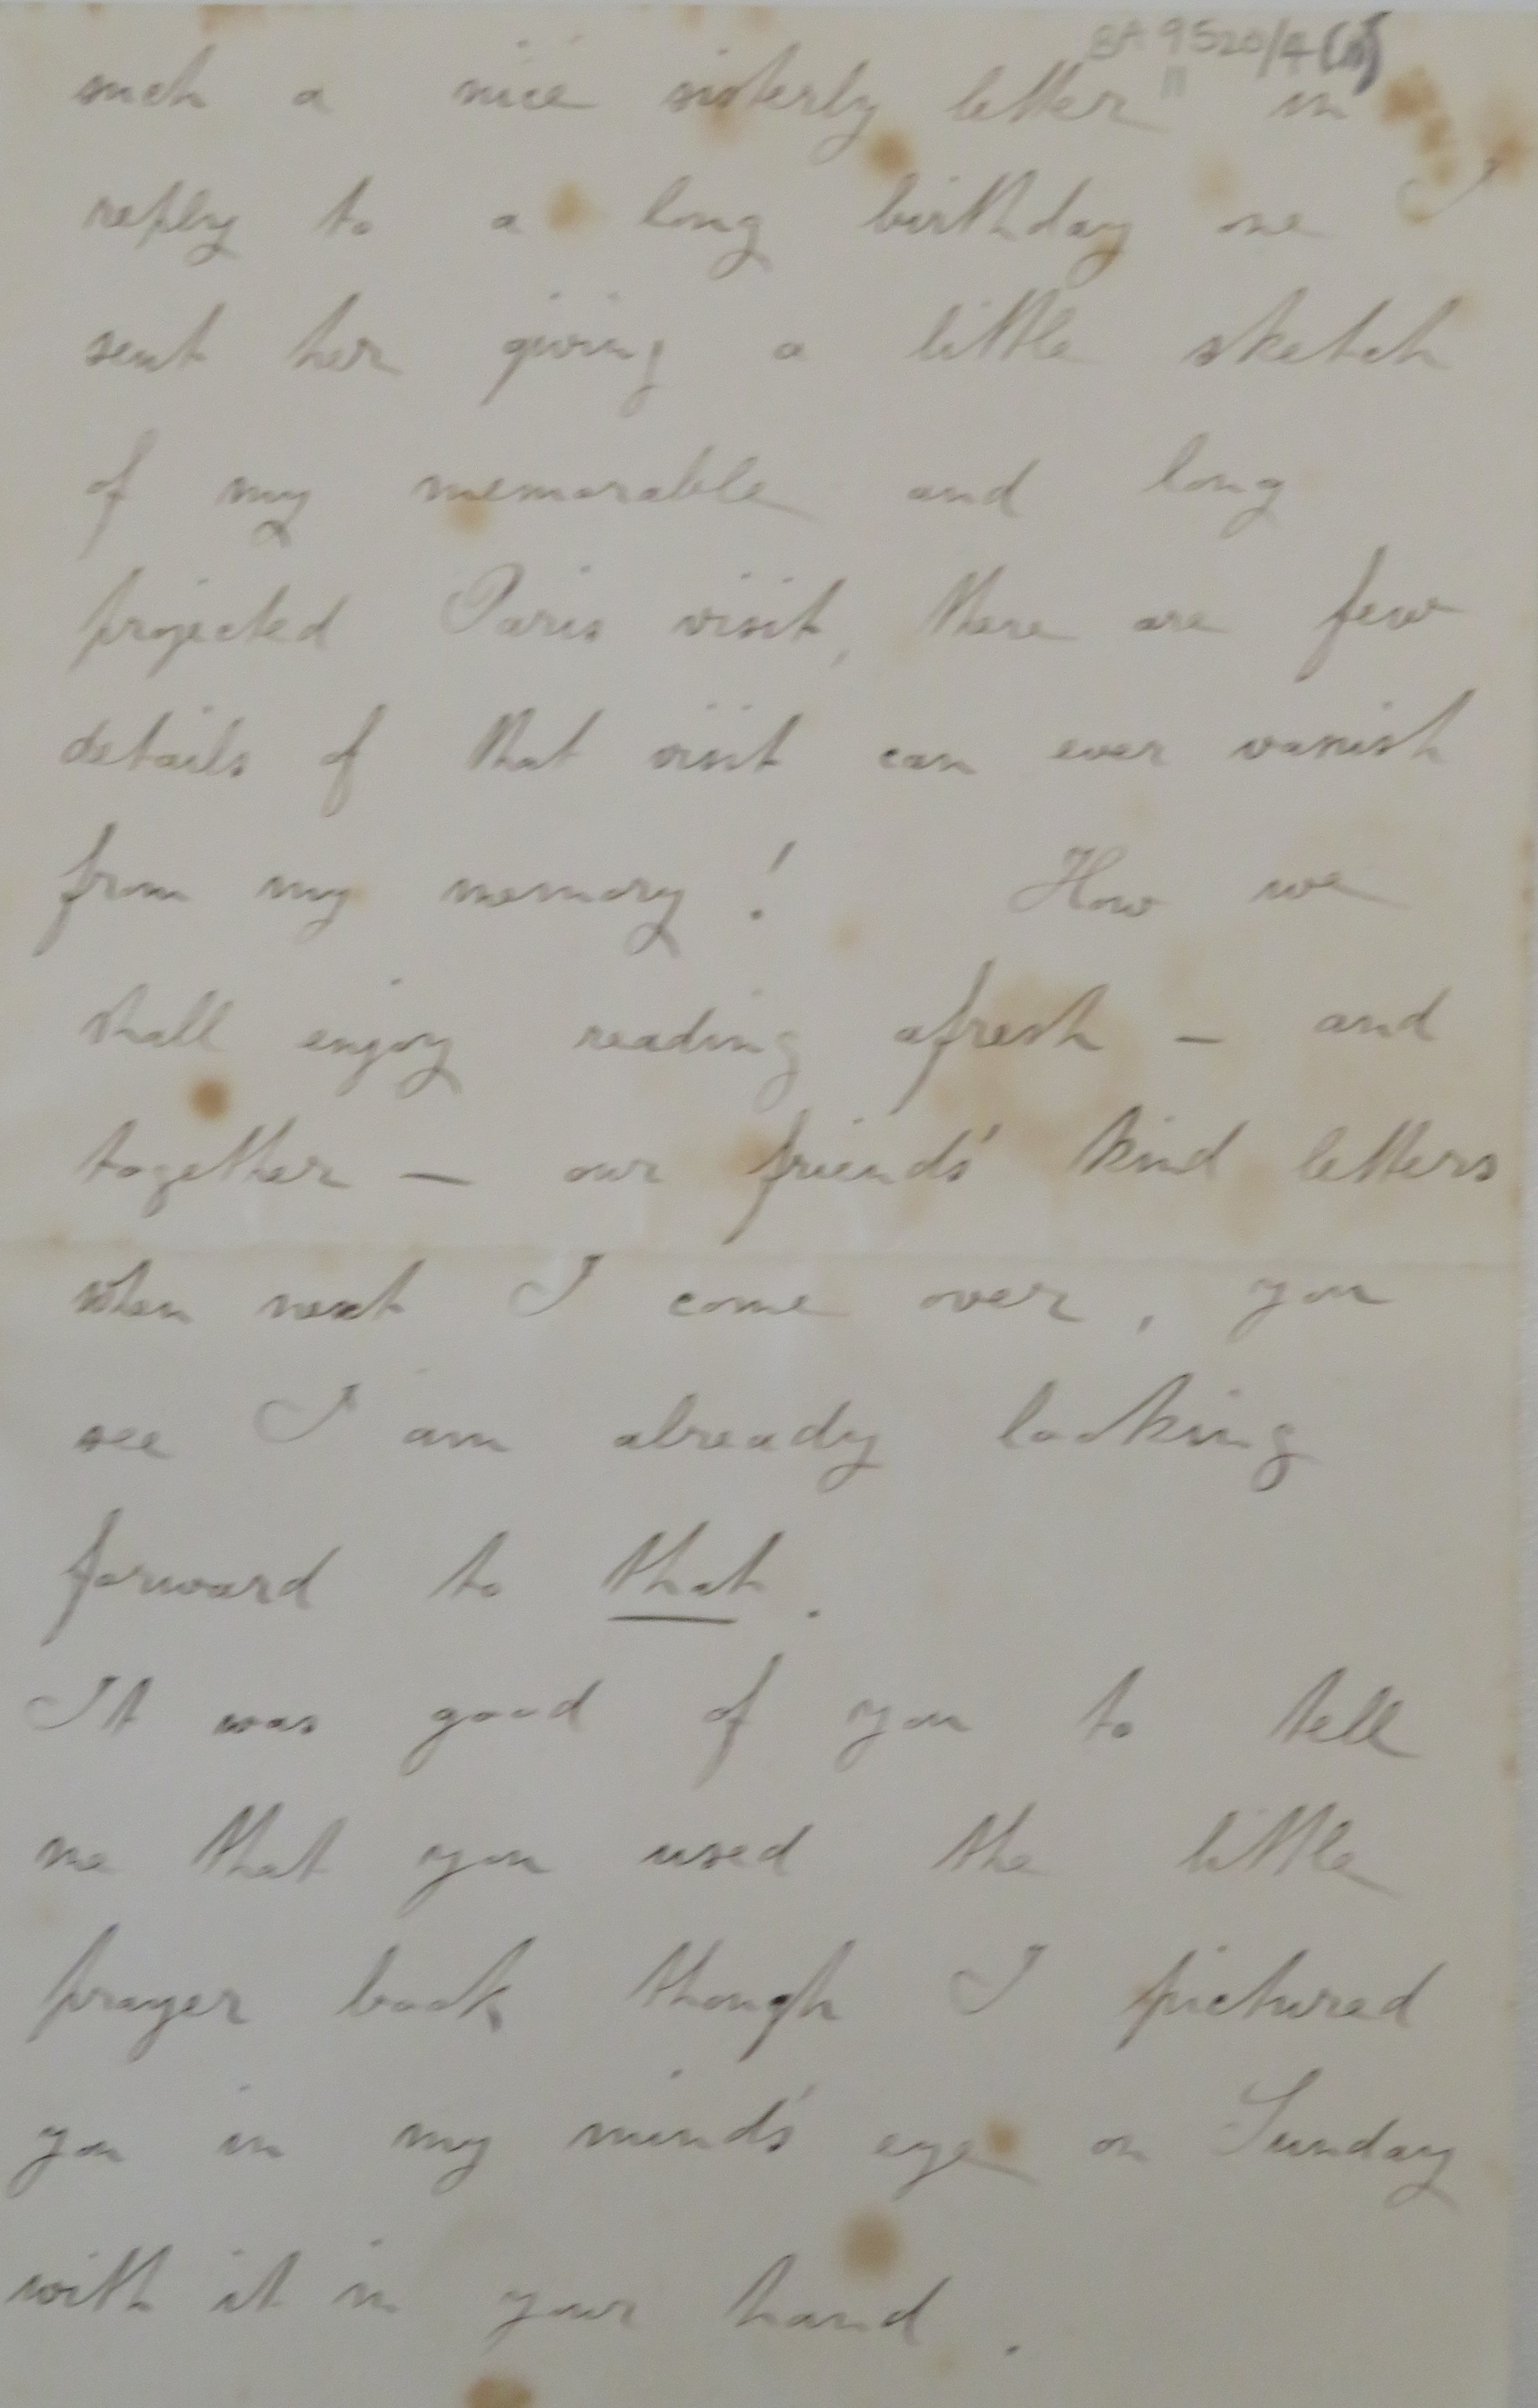 BA 9520/4(ii)
such a nice sisterly letter" in
reply to a long birthday one I
sent her giving a little sketch
of my memorable and long
projected Paris visit, there are few
details of that visit can ever vanish
from my memory! How we
shall enjoy reading afresh — and
together — our friends' kind letters
when next I come over, you
see I am already looking
forward to that.
It was good of you to tell
me that you used the little
prayer book though I pictured
you in my mind's eye on Sunday
with it in your hand.